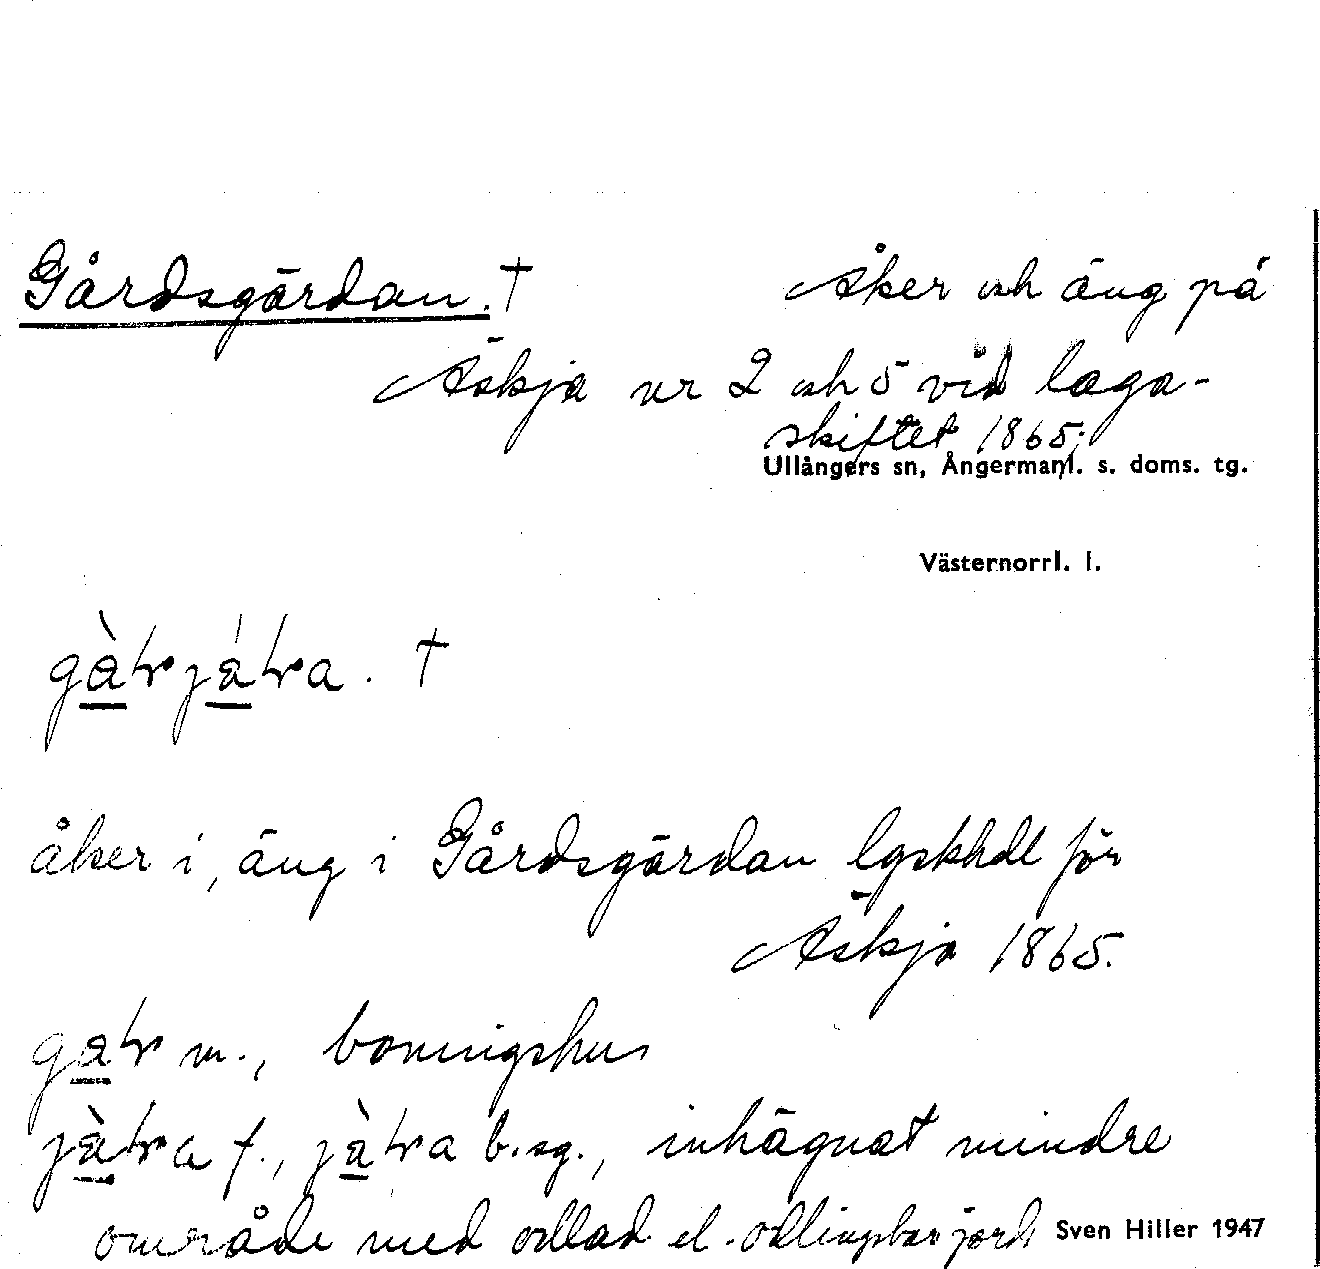 Gårdsgärdan. † Åker och äng på
Äskja nr 2 och 5 vid laga-
skiftet 1865.
Ullångers sn, Ångermanl. s. doms. tg.
Västernorrl. l.
†
åker i, äng i Gårdsgärdan lgskhdl för
Äskja 1865.
m., boningshus
f., b.sg., inhägnat mindre
område med odlad el. odlingsbar jord Sven Hiller 1947